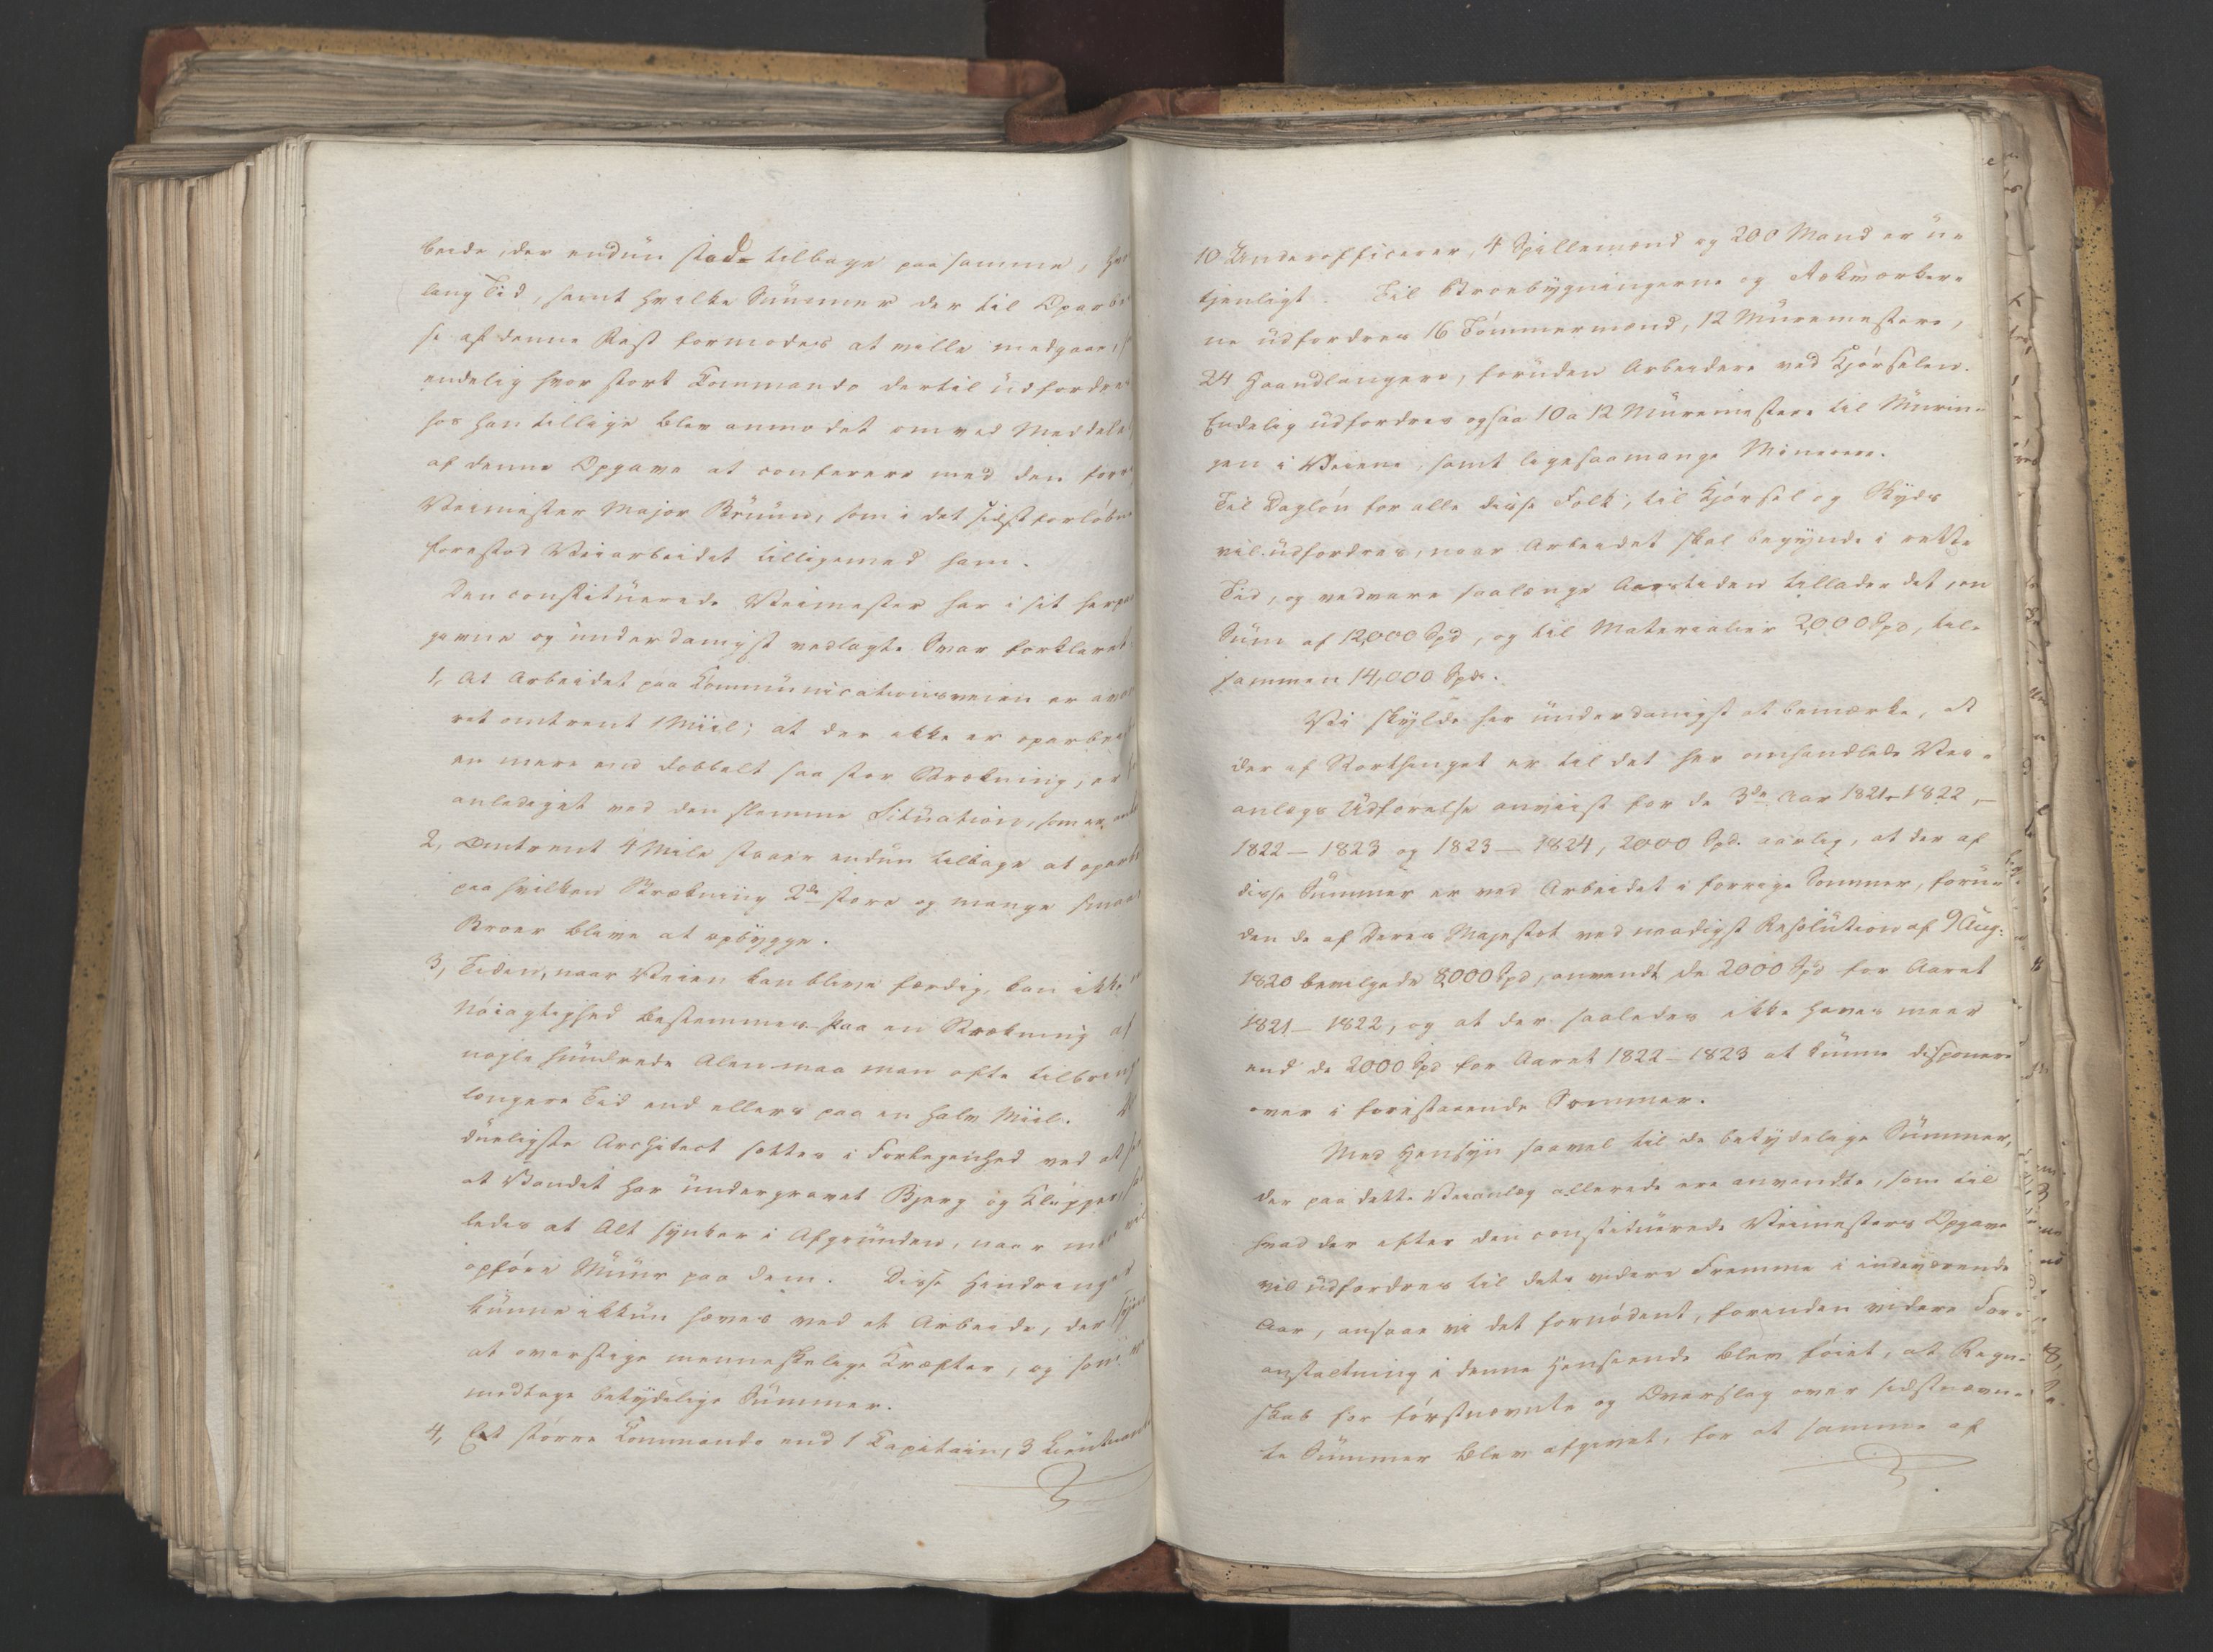 beide, der endnu stode tilbage paa samme, hvor
lang Tid, samt hvilke Summer der til Oparbei
se af denne Rest formodes at ville medgaae,
endelig hvor stort Commando dertil udfordres
hos han tillige blev anmodet om ved Meddelel
af denne Opgave at conferere med den forri
Veimester Major Bruun, som i det sidst forløbne
forestod Veiarbeidet tilligemed ham.
Den constituerede Veimester har i sit herpaa
givne og underdanigst vedlagte Svar forklaret
1, At Arbeidet paa Communicationsveien er avan
ret omtrent 1 Miil; at der ikke er oparbei
en mere end dobbelt saa stor Strækning, er
anlediget ved den slemme Situation, som er
2, Omtrent 4 Mile staaer endnu tilbage at oparbei
paa hvilken Strækning 2de store og mange smaae
Broer blive at opbygge.
3, Tiden, naar Veien kan blive færdig, kan ikke
Nöiagtighed bestemmes. Paa en Strækning af
nogle hundrede Alen maa man ofte tilbringe
længere Tid end ellers paa en halv Miil.
dueligste Architect sættes i Forlegenhed ved at
at Vandet har undergravet Bjerg og Klipper,
ledes at Alt synker i Afgrunden, naar man vil
opføre Muur paa dem. Disse Hindringer
kunne ikkun hæves ved et Arbeide, der synes
at overstige menneskelige Kræfter, og som
medtage betydelige Summer.
4, Et større Commando end 1 Capitain, 3 Lieutenant
10 Underofficerer, 4 Spillemænd og 200 Mand er u=
tjenligt. Til Broebygningerne og Rækværker=
ne udfordres 16 Tømmermænd, 12 Muremestere,
24 Haandlangere, foruden Arbeidere ved Kjørselen.
Endelig udfordres ogsaa 10 a 12 Muremestere til Murin=
gen i Veiene, samt ligesaamange Minerere.
Til Dagløn for alle disse Folk, til Kjørsel og Skyds
vil udfordres, naar Arbeidet skal begynde i rette
Tid, og vedvare saalænge Aarstiden tillader det, en
Sum af 12,000 Spd, og til Materialier 2000 Spd, til=
sammen 14,000 Spd.
Vi skylde her underdanigst at bemærke, at
der af Storthinget er til det her omhandlede Vei=
anlægs Udførelse anviist for de 3de Aar 1821-1822,
1822-1823 og 1823-1824, 2000 Spd. aarlig, at der af
disse Summer er ved Arbeidet i forrige Sommer, foru=
den de af Deres Majestæt ved naadigst Resolution af 9 Aug:
1820 bevilgede 8000 Spd, anvendt de 2000 Spd for Aaret
1821-1822, og at der saaledes ikke haves meer
end de 2000 Spd for Aaret 1822-1823 at kunne disponere
over i forestaaende Sommer.
Med Hensyn saavel til de betydelige Summer,
der paa dette Veianlæg allerede ere anvendte, som til
hvad der efter den constituerede Veimesters Opgave
vil udfordres til dets videre Fremme i indeværende
Aar, ansaae vi det fornødent, forenden videre For=
anstaltning i denne Henseende blev føiet, at Regn=
skab for førstnævnte og Overslag over sidstnævn=
te Summer blev afgivet, for at samme af